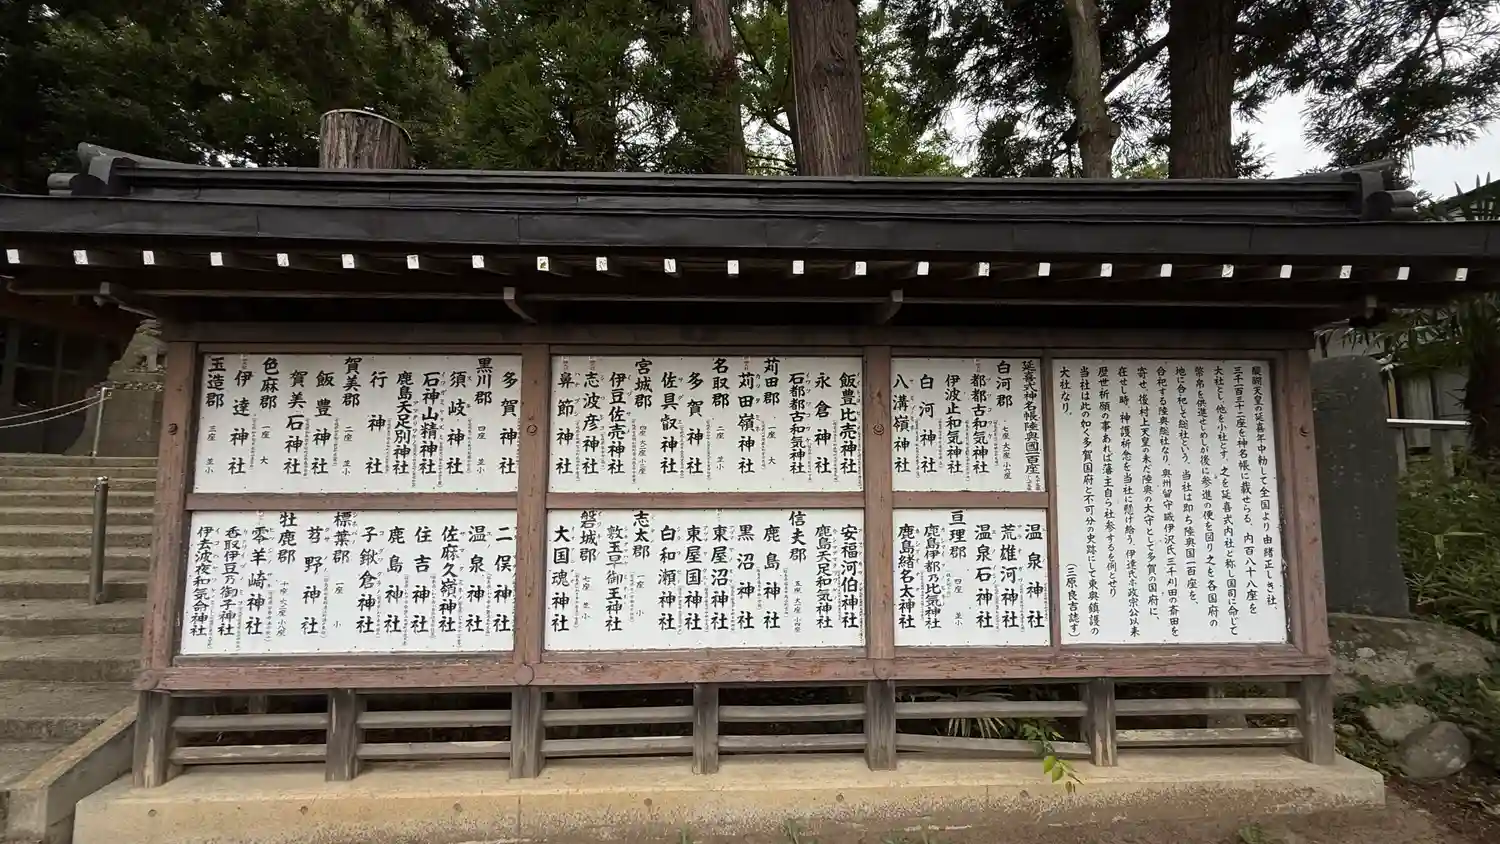 醍醐天皇の延喜年中勅して全国より由緒正しき社、
三千一百三十二座を神名帳に載せらる、内百八十八座を
大社とし、他を小社とす。之を延喜式内社と称し国司に命じて
幣帛を供進せしめしが後に参進の便を図り之を各国府の
地に合祀して総社という。当社は即ち陸奥国一百座を、
合祀する陸奥総社なり。奥州留守職伊沢氏三千刈田の斎田を
寄せ、後村上天皇の未だ陸奥の大守として多賀の国府に、
在せし時、神護祈念を当社に懸け給う。伊達氏も政宗公以来
歴世祈願の事あれば藩主自ら社参するを例とせり
当社は此の如く多賀国府と不可分の史跡にして東奥鎮護の
大社なり。
(三原良吉誌す)
延喜式神名帳陸奥國一百座
白河郡 七座 大一座 小六座
都都古和気神社
伊波止和気神社
白河神社
八溝嶺神社
飯豊比売神社
永倉神社
石都都古和気神社
苅田郡 一座 大
苅田嶺神社
名取郡 二座 並小
多賀神社
佐具叡神社
宮城郡 四座 大二座 小二座
伊豆佐売神社
志波彦神社
鼻節神社
多賀神社
黒川郡 四座 並小
須岐神社
石神山精神社
鹿島天足別神社
行神社
賀美郡 二座 並小
飯豊神社
賀美石神社
色麻郡 一座 大
伊達神社
玉造郡 三座 並小
温泉神社
荒雄河神社
温泉石神社
亘理郡 四座 並小
鹿島伊都乃比気神社
鹿島緒名太神社
安福河伯神社
鹿島天足和気神社
信夫郡 五座 大一座 小四座
鹿島神社
黒沼神社
東屋沼神社
東屋国神社
白和瀬神社
志太郡 一座 小
敷玉早御玉神社
磐城郡 七座 並小
大国魂神社
二俣神社
温泉神社
佐麻久嶺神社
住吉神社
鹿島神社
子鍬倉神社
標葉郡 一座 小
苕野神社
牡鹿郡 十座 大二座 小八座
零羊崎神社
香取伊豆乃御子神社
伊去波夜和気命神社